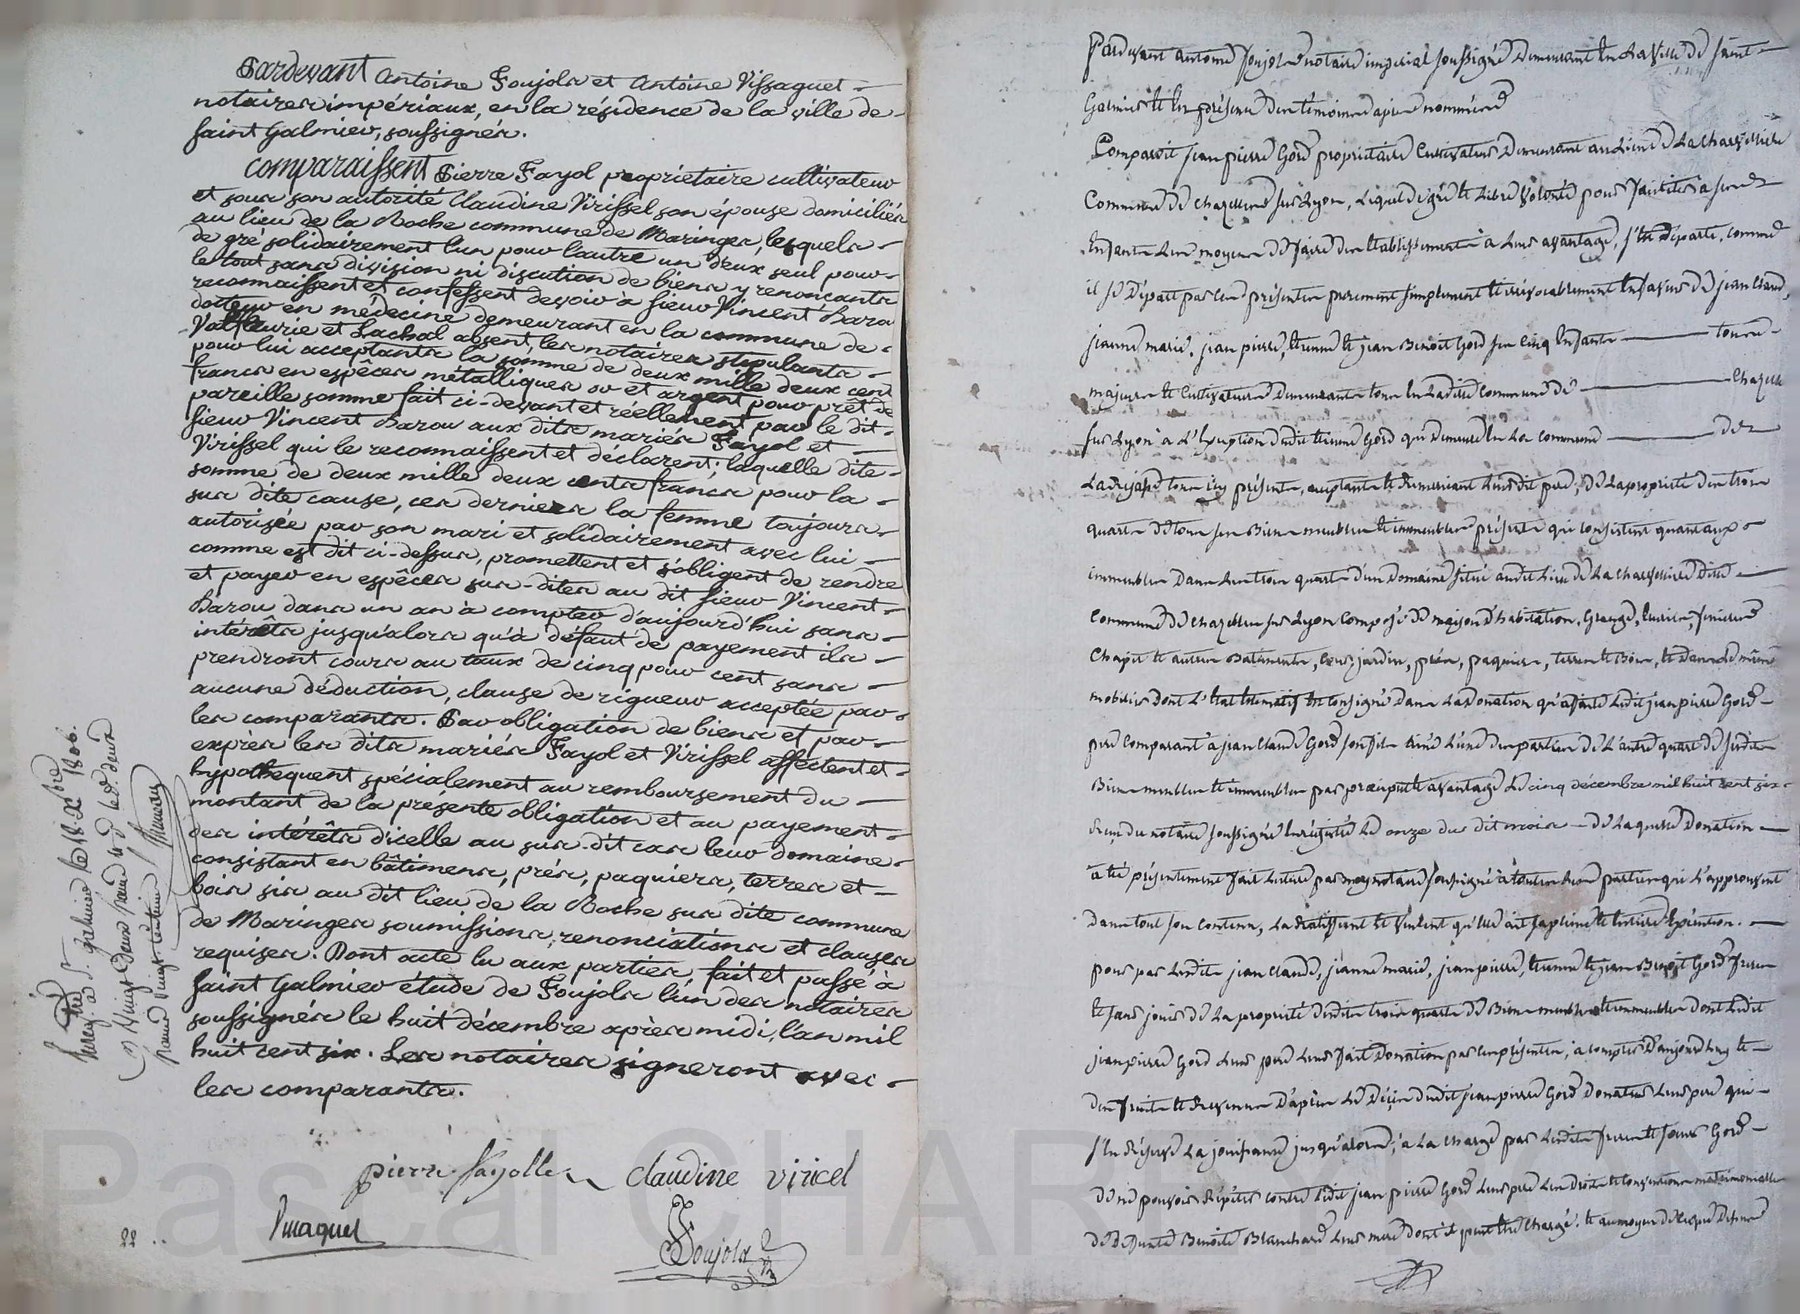 Pardevant Antoine Foujols et Antoine Vissaguet
notaires impériaux, en la résidence de la ville de
saint Galmier, soussignés.
comparaissent Pierre Fayol propriétaire cultivateur
et sous son autorité Claudine Virissel son épouse domiciliés
au lieu de la Roche commune de Maringes, lesquels
de gré solidairement l'un pour l'autre un d'eux seul pour
le tout sans division ni discution de biens y renonçants
reconnaissent et confessent devoir à sieur Vincent Barou
docteur en médecine demeurant en la commune de
Valfleurie et Lachal absent, les notaires stipulants
pour lui acceptants la somme de deux mille deux cent
francs en espèces métalliques or et argent pour prêt de
pareille somme fait ci-devant et réellement par le dit
sieur Vincent Barou aux dits mariés Fayol et
Virissel qui le reconnaissent et déclarent; laquelle dite
somme de deux mille deux cents francs pour la
sus dite cause, ces derniers la femme toujours
autorisée par son mari et solidairement avec lui
comme est dit ci-dessus, promettent et s'obligent de rendre
et payer en espèces sus-dites au dit sieur Vincent
Barou dans un an à compter d'aujourd'hui sans
intérêts jusqu'alors qu'à défaut de payement ils
prendront cours au taux de cinq pour cent sans
aucune déduction, clause de rigueur acceptée par
les comparants. Par obligation de biens et par
exprès les dits mariés Fayol et Virissel affectent et
hypothèquent spécialement au remboursement du
montant de la présente obligation et au payement
des intérêts d'icelle au sus-dit cas leur domaine
consistant en bâtimens, prés, paquiers, terres et
bois sis au dit lieu de la Roche sus dite commune
de Maringes soumissions, renonciations et clauses
requises. Dont acte lu aux parties, fait et passé à
saint Galmier étude de Foujols l'un des notaires
soussignés le huit décembre après midi, l'an mil
huit cent six. Les notaires signeront avec
les comparants.
pierre fayolle claudine viricel
Vissaguet
Foujols
22
à St. galmier le 18 Xbre 1806.
Pardevant antoine foujols notaire impérial soussigné demeurant en la ville de saint
Galmier et en présence des témoins après nommés
Comparoit jean pierre Gord proprietaire cultivateur demeurant au lieu de la
Commune de chazelles sur Lyon, lequel de gré et libre volonté pour faciliter à ses
Enfants les moyens de faire des Etablissements à leur avantage, s'est départi, comme
il se départ par ces présentes purement simplement et irrévocablement en faveur de jean Claude,
jeanne marie, jean pierre, etienne et jean Benoit Gord ses cinq enfants tous
majeurs et cultivateurs demeurants tous en ladite commune de chazelles
sur Lyon à l'Exception dudit etienne Gord qui demeure en la commune de
tous icy présents, acceptants et remerciant leur dit pere, de la propriété des trois
quarts de tous ses Biens meubles et immeubles présents qui consistent quant aux
immeubles dans les trois quarts d'un Domaine situé audit lieu de la dite
commune de chazelles sur Lyon composé de maison d'habitation, Grange, Ecurie,
Chapit et autres Batiments, cour, jardin, prés, paquiers, terres et Bois, et dans le même
mobilier dont l'etat estimatif est consigné dans la Donation qu'a faite ledit jean pierre Gord
pere comparant à jean Claude Gord son fils ainé l'une des parties de l'autre quart de sesdits
Biens meubles et immeubles par préciput et avantage le cinq décembre mil huit cent six
reçu du notaire soussigné enregistré le onze du dit mois de laquelle Donation
a été présentement fait lecture par moy notaire soussigné à toutes les parties qui l'approuvent
dans tout son contenu, la ratiffient et veulent qu'elle ait sa pleine et entiere Exécution.
pour par lesdits jean claude, jeanne marie, jean pierre, etienne et jean Benoit Gord freres
et soeur jouir de la propriété desdits trois quarts de Biens meubles et immeubles dont ledit
jean pierre Gord leur pere leur fait Donation par ces présentes, à compter d'aujourdhuy et
des fruits et revenus d'après le Décès dudit jean pierre Gord Donateur leur pere qui
s'en réserve la jouissance jusqu'alors, à la charge par lesdits freres et soeur Gord
de ne pouvoir répéter contre ledit jean pierre Gord leur pere les droits et conventions matrimoniales
de défunte Benoite Blanchard leur mere dont il peut etre chargé. et au moyen de ce que dessus
Pascal CHAR